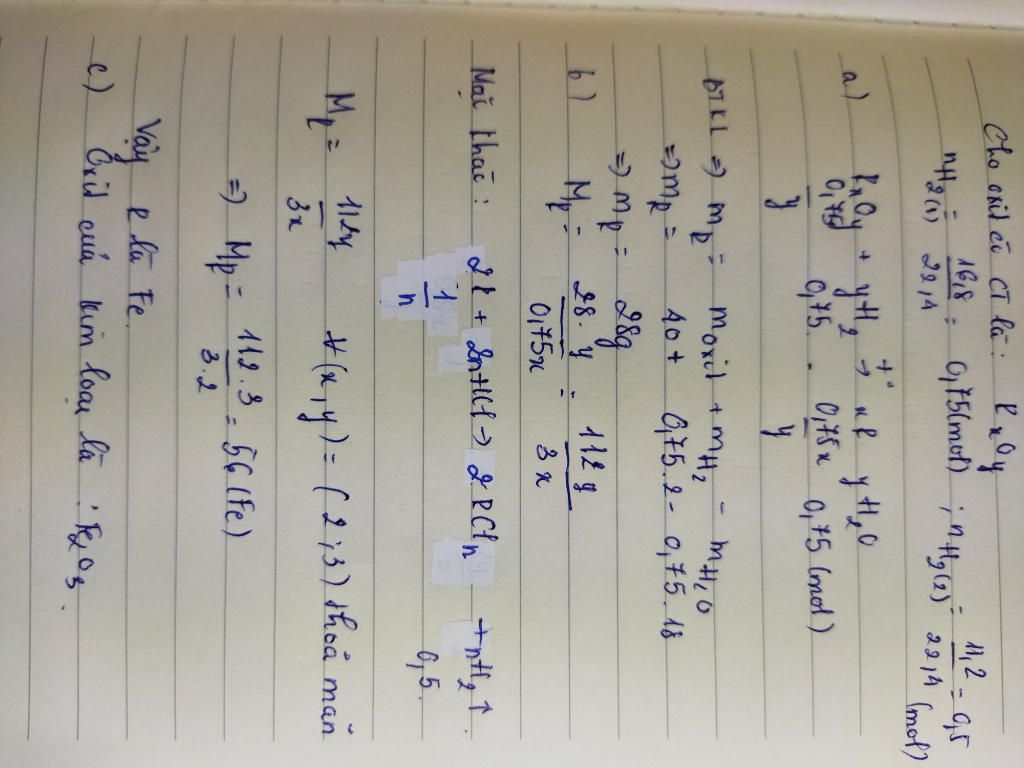 Cho oxit có CT là: RxOy
nH2(1) = 16,8/22,4 = 0,75(mol) ; nH2(2) = 11,2/22,4 = 0,5 (mol)
a) RxOy + yH2 t°→ xR yH2O
0,75/y 0,75 - 0,75x/y 0,75 (mol)
BTKL ⇒ mR = moxit + mH2 - mH2O
⇒ mR = 40 + 0,75.2 - 0,75.18
⇒ mR = 28g
b) MR = 28.y/0,75x = 112y/3x
Mặt khác: 2R + 2nHCl → 2RCln + nH2↑
1/n 0,5.
MR = 112y/3x ∀(x,y) = (2;3) thoả mãn
⇒ MR = 112.3/3.2 = 56(Fe)
Vậy R là Fe
c) Oxit của kim loại là : Fe2O3.